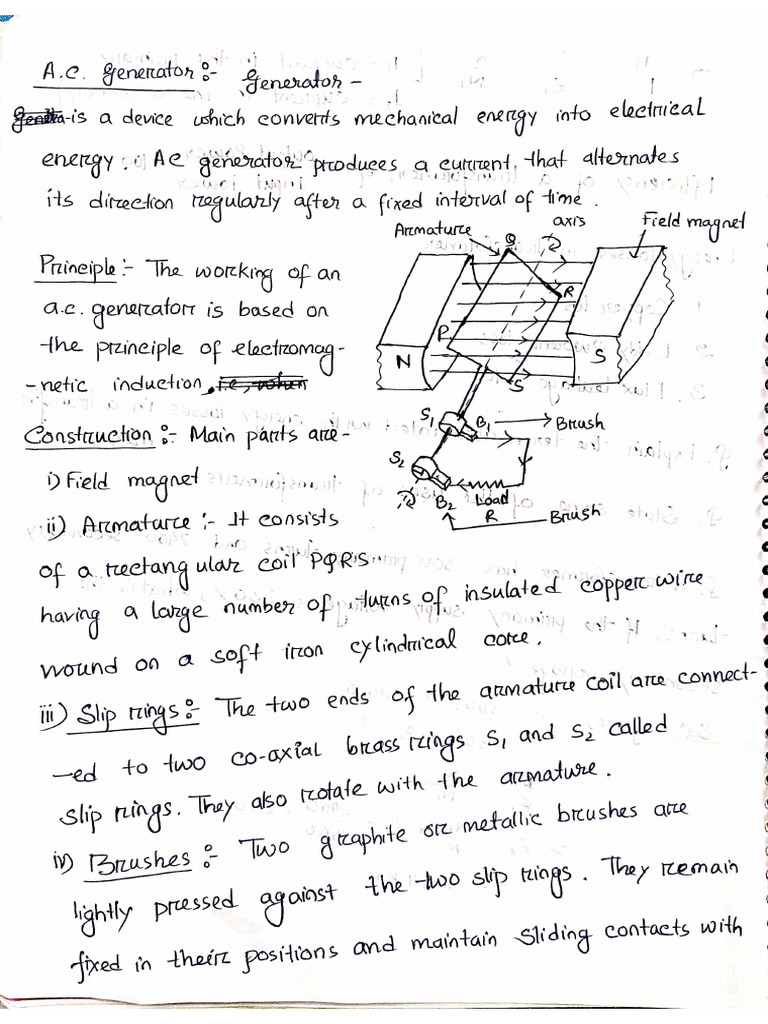 A.C. generator :- Generator -
is a device which converts mechanical energy into electrical
energy. AC generator produces a current, that alternates
its direction regularly after a fixed interval of time.
Armature
Q
axis
Field magnet
Principle :- The working of an
a.c. generator is based on
the principle of electromag-
-netic induction, i.e, when
R
P
N
S
S
Construction :- Main parts are -
S1
B1
Brush
i) Field magnet
S2
B2
Load
R
Brush
ii) Armature :- It consists
of a rectangular coil PQRS
having a large number of turns of insulated copper wire
wound on a soft iron cylindrical core.
iii) Slip rings :- The two ends of the armature coil are connect-
-ed to two co-axial brass rings S1 and S2 called
slip rings. They also rotate with the armature.
iv) Brushes :- Two graphite or metallic brushes are
lightly pressed against the two slip rings. They remain
fixed in their positions and maintain sliding contacts with